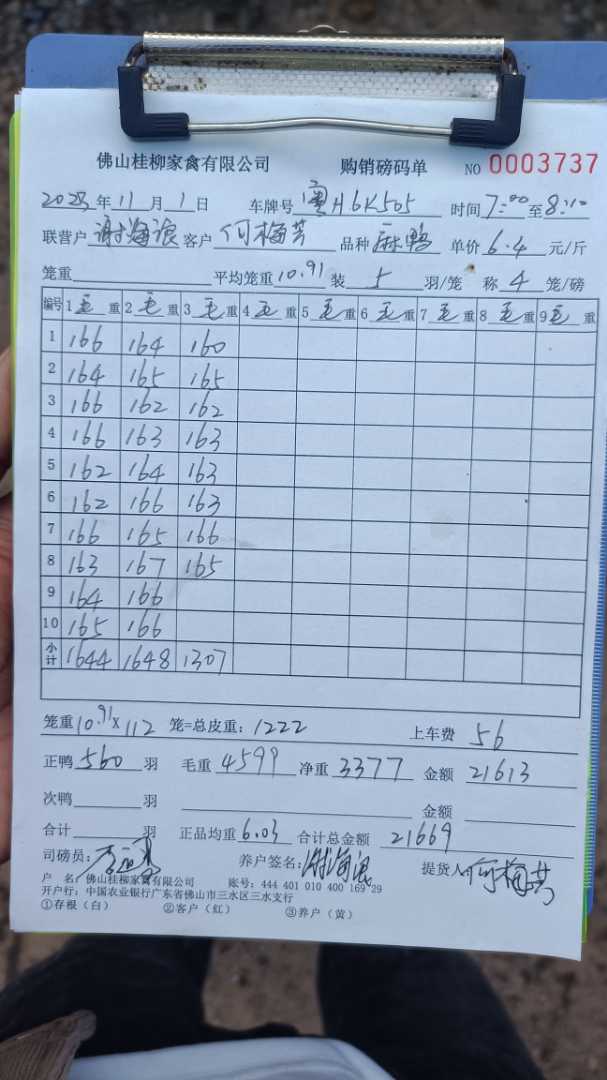 佛山桂柳家禽有限公司 购销磅码单 NO 0003737
2023年11月1日 车牌号 粤H6K505 时间 7:00 至 8:10
联营户 谢海浪 客户 何梅芳 品种 麻鸭 单价 6.4 元/斤
笼重 平均笼重 10.91 装 5 羽/笼 称 4 笼/磅
编号 1 毛 重 2 毛 重 3 毛 重 4 毛 重 5 毛 重 6 毛 重 7 毛 重 8 毛 重 9 毛 重
1 166 164 160
2 164 165 165
3 166 162 162
4 166 163 163
5 162 164 163
6 162 166 163
7 166 165 166
8 163 167 165
9 164 166
10 165 166
小计 1644 1648 1307
笼重 10.91 x 112 笼=总皮重: 1222 上车费 56
正鸭 560 羽 毛重 4599 净重 3377 金额 21613
次鸭 羽 金额
合计 羽 正品均重 6.03 合计总金额 21669
司磅员: 养户签名: 谢海浪 提货人 何梅芳
户 名: 佛山桂柳家禽有限公司 账号: 444 401 010 400 169 29
开户行: 中国农业银行广东省佛山市三水区三水支行
①存根（白） ②客户（红） ③养户（黄）